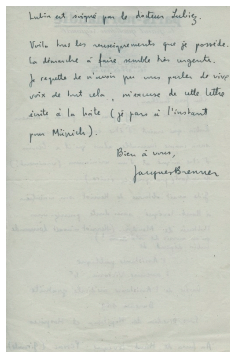 Lubin est soigné par le docteur Lubiez.
Voilà tous les renseignements que je possède.
La démarche à faire semble très urgente.
Je regrette de n'avoir pu vous parler de vive
voix de tout cela, m'excuse de cette lettre
écrite à la hâte (je pars à l'instant
pour).
Bien à vous,
Jacques Brenner